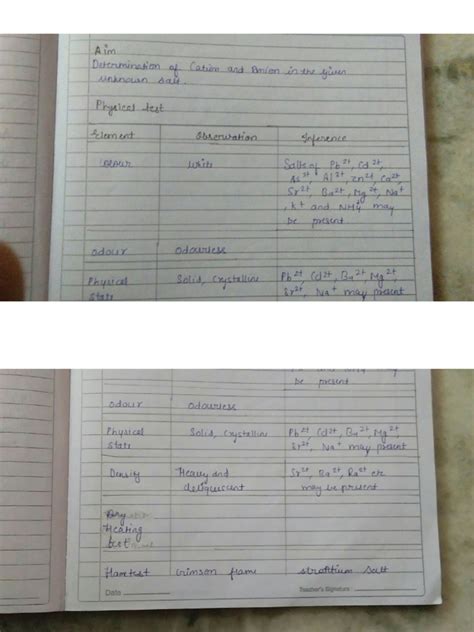 Aim
Determination of Cation and Anion in the given
unknown salt.
Physical test
Element Observation Inference
Colour White Salts of Pb2+, Cd2+,
As3+, Al3+, Zn2+, Ca2+
Sr2+, Ba2+, Mg2+, Na+
, K+ and NH4 may
be present
Odour Odourless
Physical Solid, Crystalline Pb2+ Cd2+, Ba2+ Mg2+
state Sr2+, Na+ may present
be present
Odour Odourless
Physical Solid, Crystalline Pb2+ Cd2+, Ba2+, Mg2+
state Sr2+, Na+ may present
Density Heavy and Sr2+, Ba2+,
deliquescent may be present
Dry
Heating
test
Flametest Crimson flame strontium salt
Date Teacher's Signature